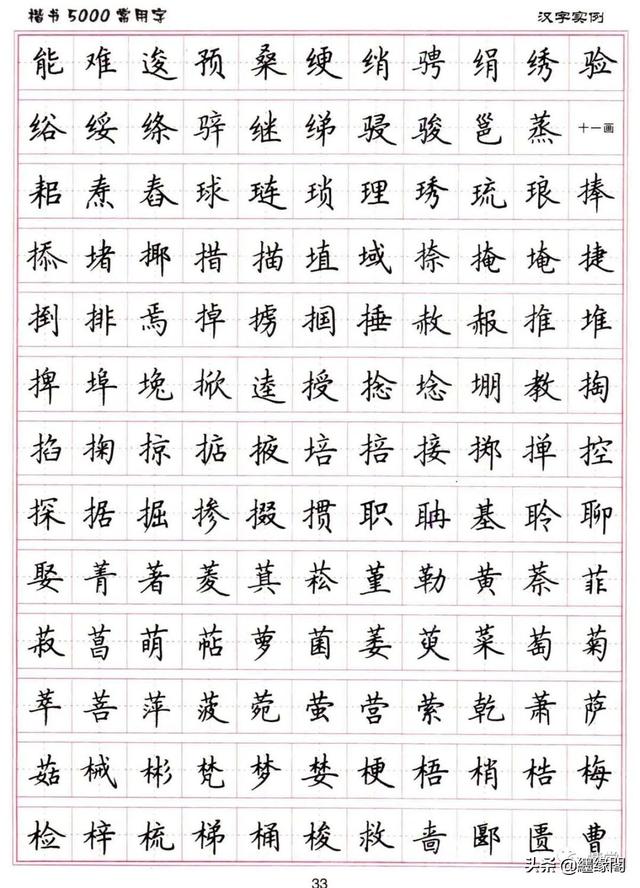 楷书5000常用字 汉字实例
能难逡预桑绠绡骋绢绣验
绤绥绦骍继绨骎骏邕蒸十一画
耜焘舂球琏琐理琇琉琅捧
掭堵揶措描埴域捺掩埯捷
捯排焉掉掳掴捶赦赧推堆
捭埠堍掀逵授捻埝堋教掏
掐掬掠掂掖培掊接掷掸控
探据掘掺掇掼职聃基聆聊
娶菁著菱萁菘堇勒黄萘菲
菽菖萌萜萝菌萎萸菜萄菊
萃菩萍菠菀萤营萦乾萧萨
菇械彬梵梦婪梗梧梢梏梅
检梓梳梯桶梭救啬郾匮曹
33
头条@纒缘閣